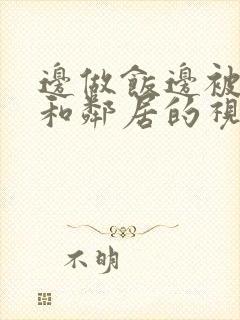 邊做飯邊被
和鄰居的視
不明